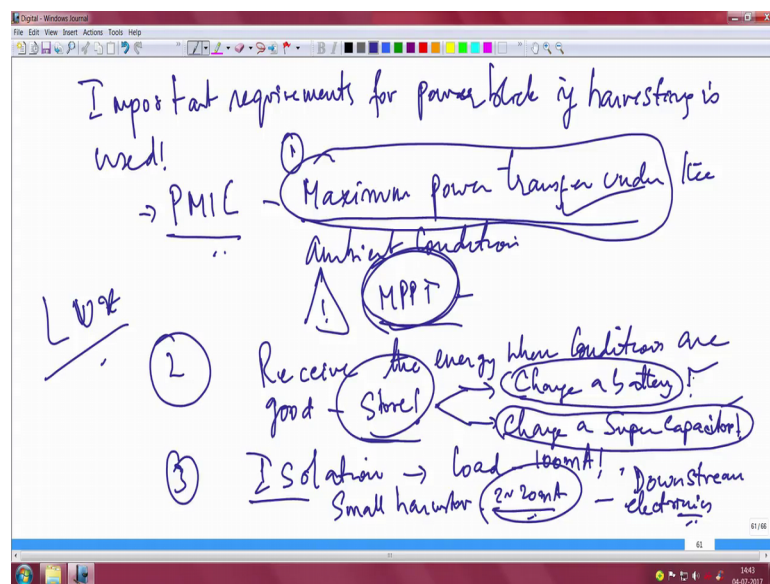 Digital - Windows Journal
File Edit View Insert Actions Tools Help
Important requirements for power block if harvesting is
used!
1
→ PMIC - Maximum power transfer under the
ambient Condition
! MPPT -
2 Receive the energy when Conditions are
good - Store! Charge a battery!
Charge a Super Capacitor!
3 Isolation → load - 100mA!
Small harvester 2~20mA - Downstream
electronics
61/66
61
14:43
04-07-2017